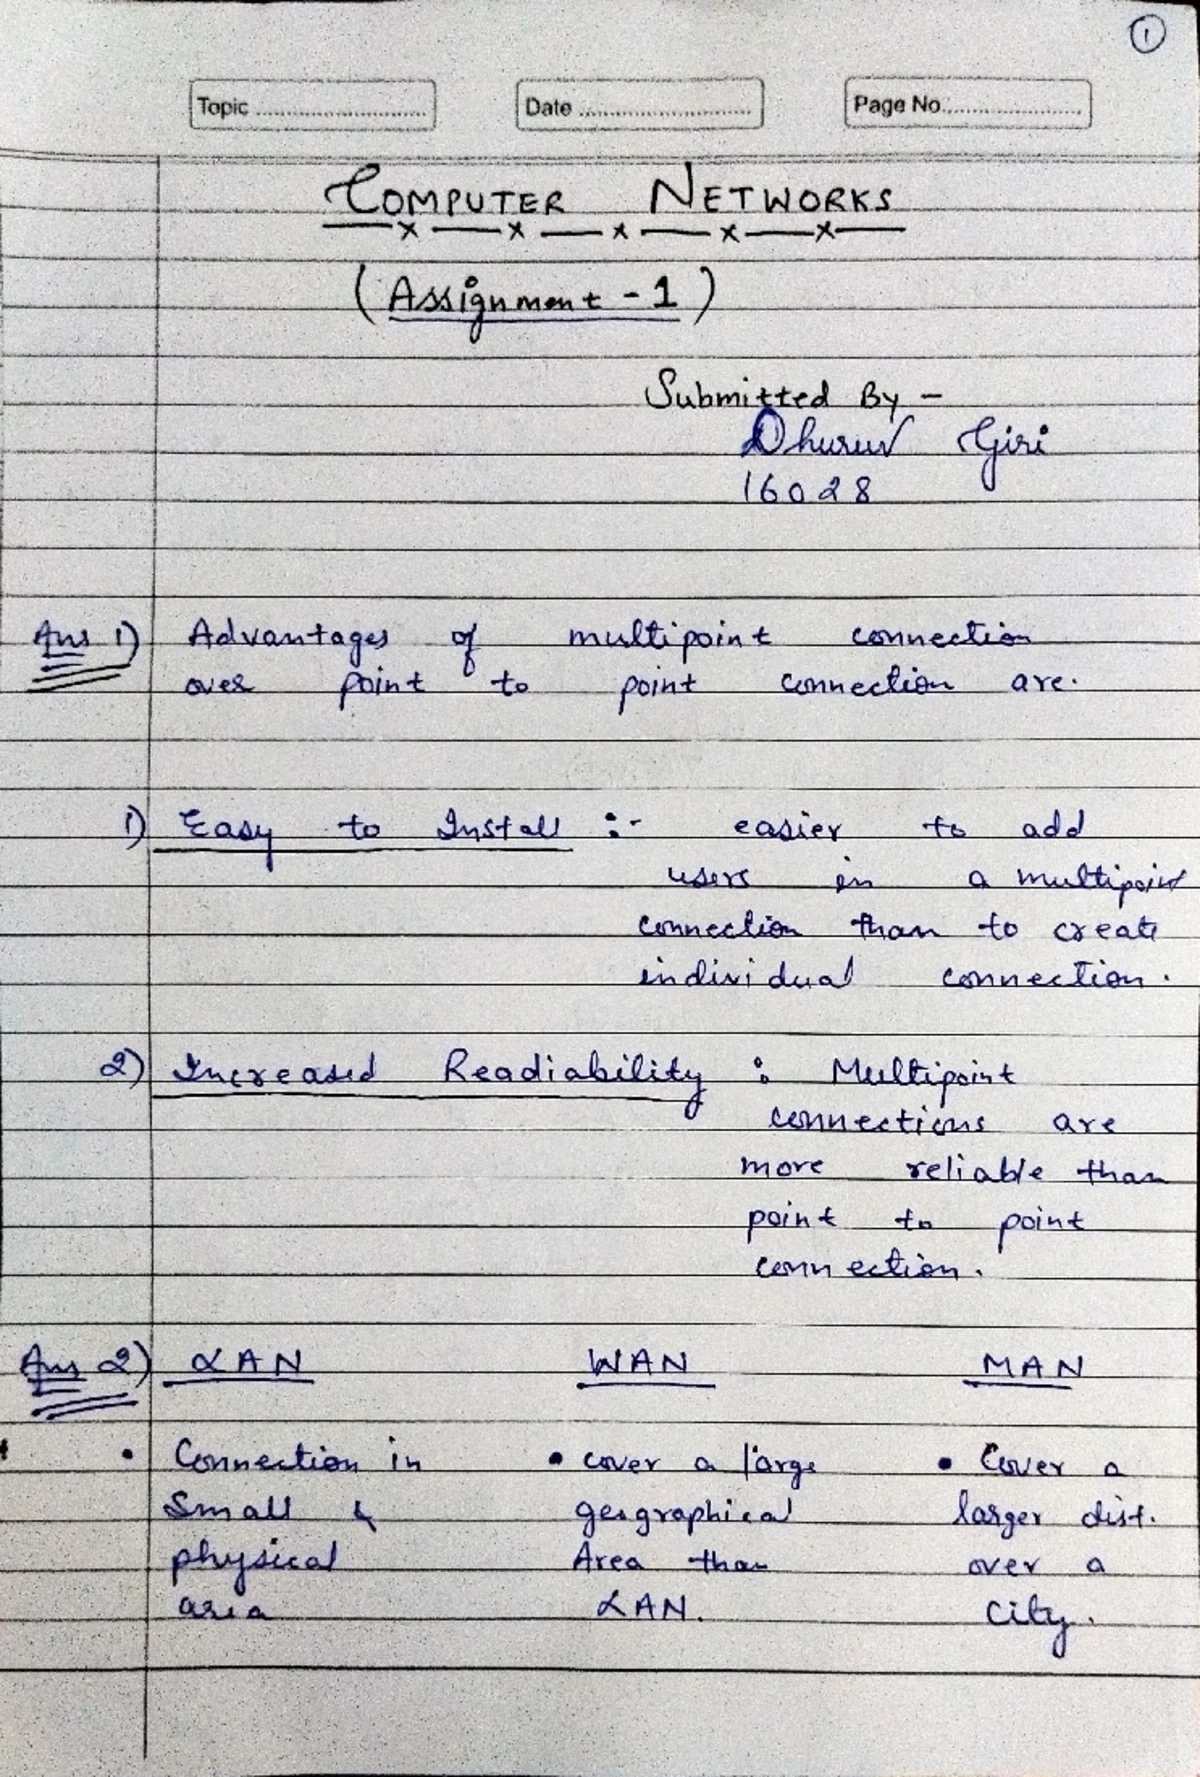 1
Topic ........................... Date ........................... Page No...........................
COMPUTER NETWORKS
(Assignment - 1)
Submitted By -
Dhuruv Giri
16028
Ans 1) Advantages of multipoint connection
over point to point connection are.
1) Easy to Install :- easier to add
users in a multipoint
connection than to create
individual connection.
2) Increased Readiability : Multipoint
connections are
more reliable than
point to point
connection.
Ans 2) LAN WAN MAN
• Connection in • cover a large • Cover a
small & geographical larger dist.
physical Area than over a
area LAN. city.